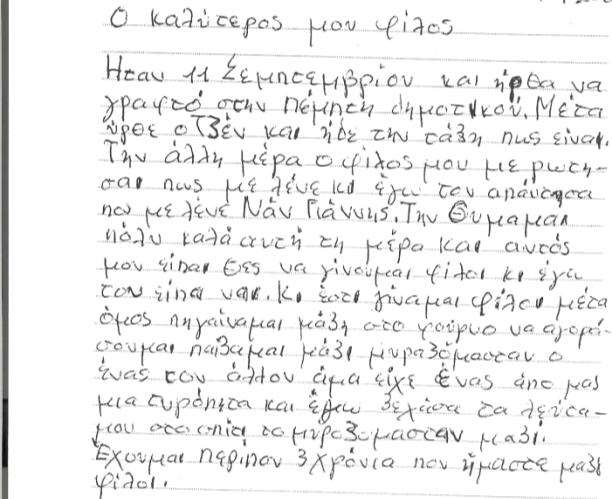 Ο καλύτερος μου φίλος
Ήταν 11 Σεμπτεμβρίου και ήρθα να
γραφτό στην πέμπτη δημοτικού. Μέτα
ύρθε ο Τζέν και ήδε την τάξη πως είναι.
Την άλλη μέρα ο φίλος μου με ρωτη-
σαι πως με λένε κι έγω τον απάντησα
που με λένε Νάν Γιάννης. Την Θυμαμαι
πόλυ καλά αυτή τη μέρα και αυτός
μου είπαι θες να γίνουμαι φίλοι κι έγω
τον είπα ναι. Κι έστι γίναμαι φίλοι μέτα
όμος πηγαίναμαι μάζη στο φούρνο να αγορά-
σουμαι παίζαμαι μάζι μυραζόμασταν ο
ένας τον άλλον άμα είχε ένας άπο μας
μια τυρόπητα και έγω ξεχάσα τα λεύτα-
μου στο σπίτι το μύραζομασταν μαζί.
Έχουμαι περιπου 3 χρόνια που ήμαστε μαζί
φίλοι.